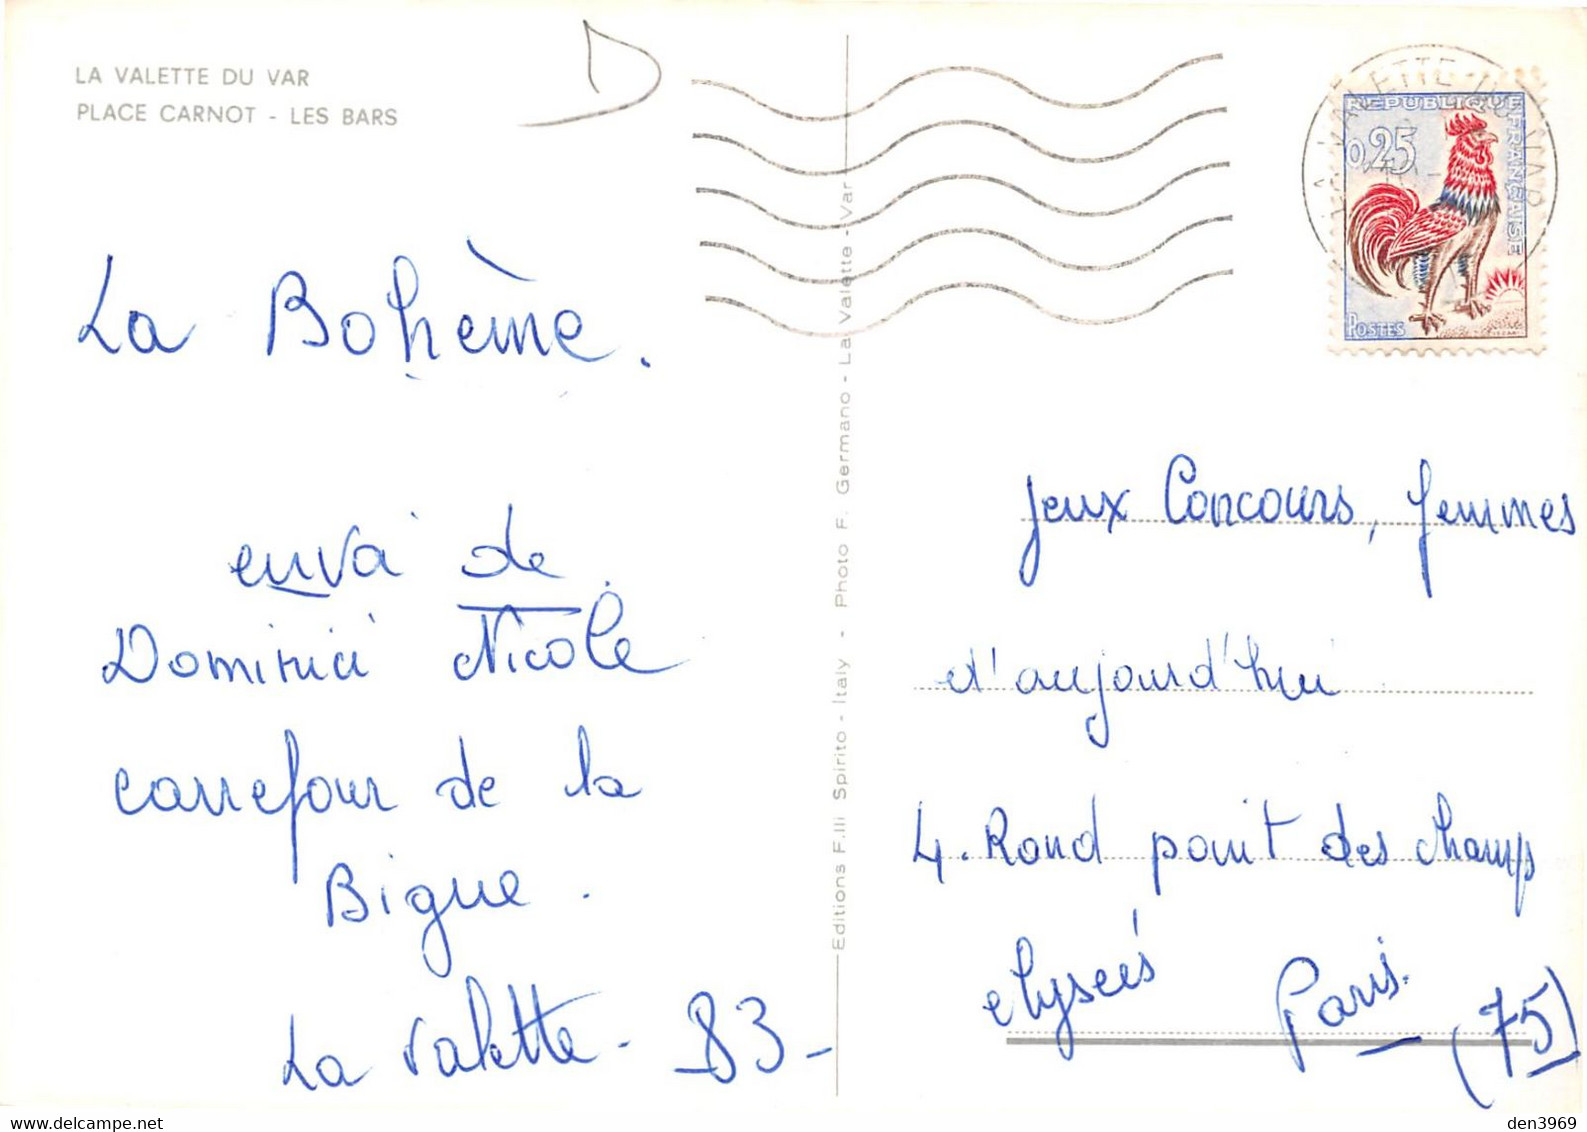 LA VALETTE DU VAR
PLACE CARNOT - LES BARS
D
La Bohème.
envoi de
Dominici Nicole
carrefour de la
Bigue.
La Valette - 83 -
Editions F.lli Spirito - Italy - Photo F. Germano - La Valette - Var
LA VALETTE DU VAR
REPUBLIQUE FRANÇAISE
0,25
POSTES
Jeux Concours, femmes
d'aujourd'hui
4. Rond point des champs
elysées Paris.
(75)
den3969